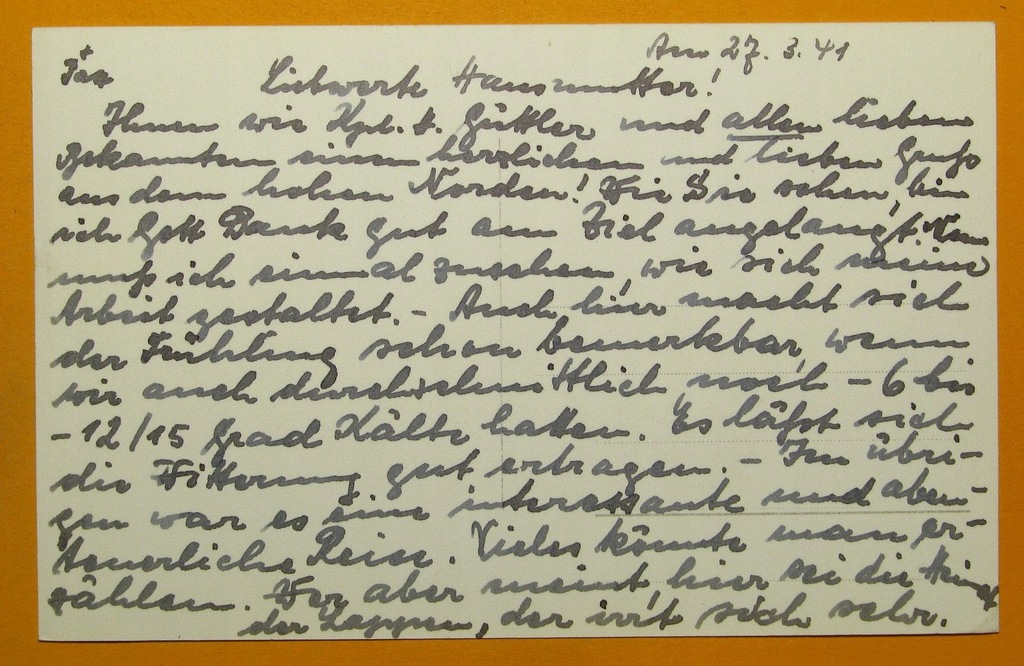 Am 27. 3. 41
Pax
Liebwerte Hausmutter!
Ihnen wie Hpl. H. Güttler und allen lieben
Bekannten einen herzlichen und lieben Gruß
aus dem hohen Norden! Wie Sie sehen, bin
ich Gott Dank gut am Ziel angelangt. Nun
muß ich einmal zusehen, wie sich meine
Arbeit gestaltet. - Auch hier macht sich
der Frühling schon bemerkbar, wenn
wir auch durchschnittlich noch - 6 bis
- 12/15 Grad Kälte hatten. Es läßt sich
die Witterung gut ertragen. - Im übri-
gen war es eine interessante und aben-
teuerliche Reise. Vieles könnte man er-
zählen. Wer aber meint, hier sei die Heimat
der Lappen, der irrt sich sehr.